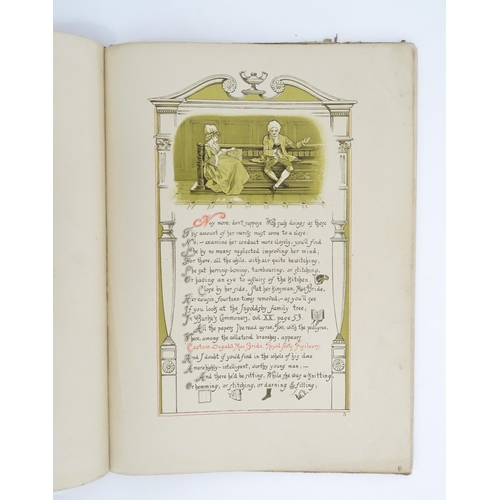 Nay more; don't suppose With such doings as those
This account of her merits must come to a close;
No; — examine her conduct more closely, you'll find
She by no means neglected improving her mind;
For there, all the while, with air quite bewitching,
She sat herring-boning, tambouring, or stitching,
Or having an eye to affairs of the Kitchen.
Close by her side, Sat her kinsman, MacBride,
Her cousin, fourteen times removed, — as you'll see
If you look at the Ingoldsby family tree,
In "Burke's Commoners", vol. XX. page 53.
All the papers I've read agree, Too, with the pedigree,
Where, among the collateral branches, appears
Captain Dugald MacBride, Royal Scots Fusileers;
And I doubt if you'd find in the whole of his clan
A more highly-intelligent, worthy young man; —
And there he'd be sitting, While she was a-knitting,
Or hemming, or stitching, or darning & fitting,